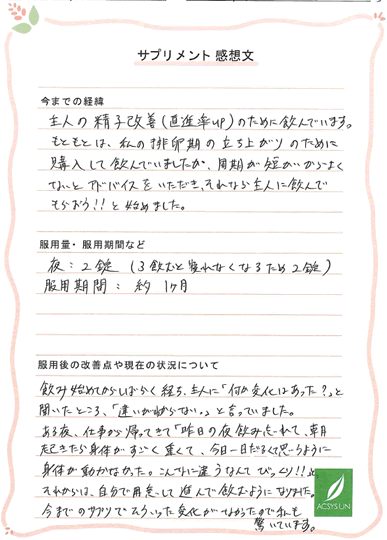 サプリメント 感想文
今までの経緯
主人の精子改善(直進率up)のために飲んでいます。
もともとは、私の排卵期の立ち上がりのために
購入して飲んでいましたが、周期が短いからよく
ないとアドバイスをいただき、それなら主人に飲んで
もらおう!!と始めました。
服用量・服用期間など
夜:2錠(3飲むと寝れなくなるため2錠)
服用期間:約1ヶ月
服用後の改善点や現在の状況について
飲み始めてからしばらく経ち、主人に「何か変化はあった?」と
聞いたところ、「違いがわからない。」と言っていました。
ある夜、仕事から帰ってきて「昨日の夜飲み忘れて、朝
起きたら身体がすごく重くて、今日一日だるくて思うように
身体が動かなかった。こんなに違うなんてびっくり!!」と
それからは、自分で用意して進んで飲むようになりました。
今までのサプリでこういった変化がなかったので私も
驚いています。
ACSYSUN